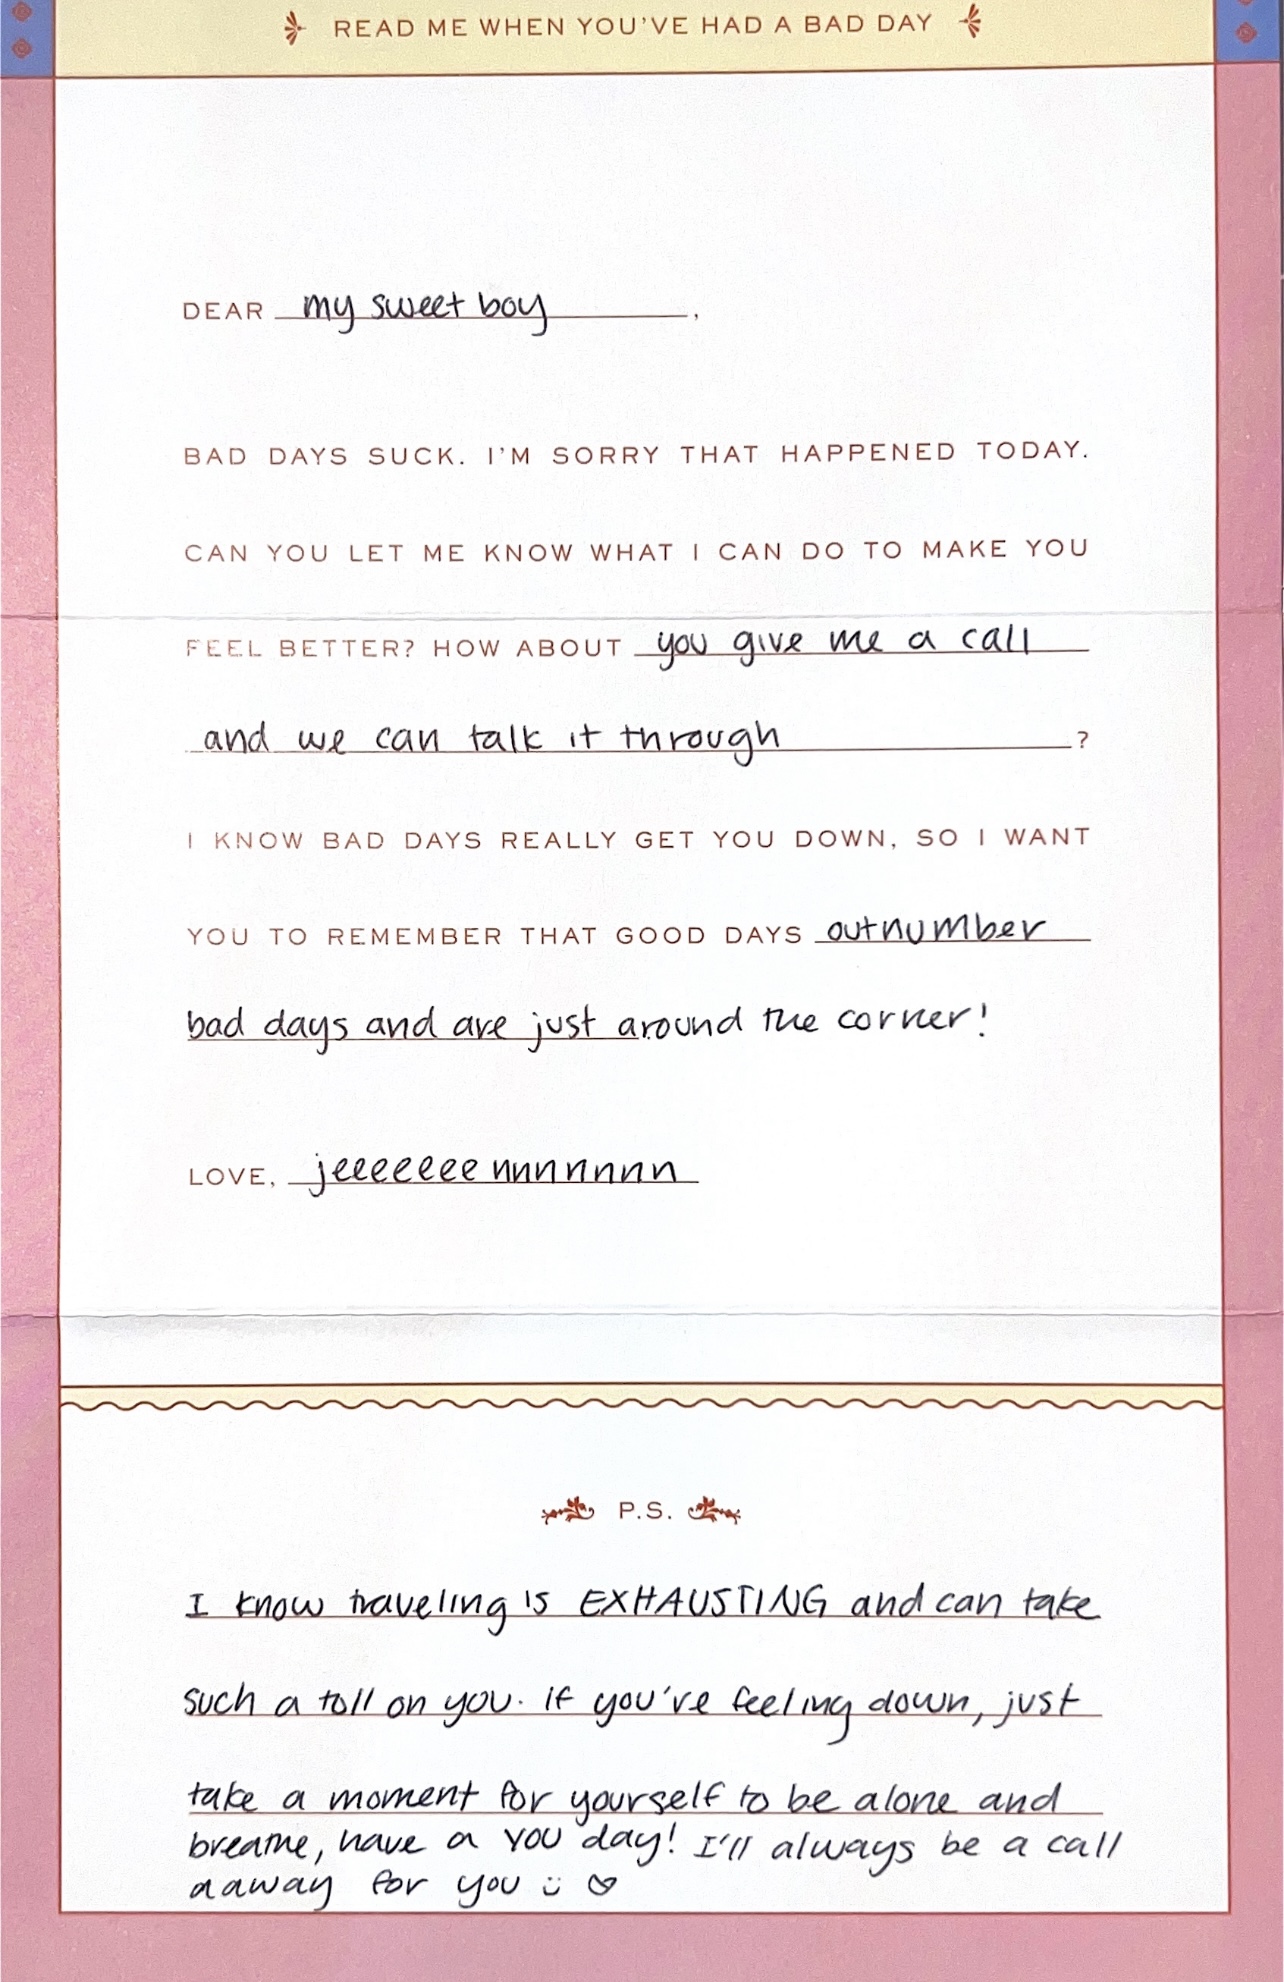 READ ME WHEN YOU'VE HAD A BAD DAY
DEAR my sweet boy,
BAD DAYS SUCK. I'M SORRY THAT HAPPENED TODAY.
CAN YOU LET ME KNOW WHAT I CAN DO TO MAKE YOU
FEEL BETTER? HOW ABOUT you give me a call
and we can talk it through?
I KNOW BAD DAYS REALLY GET YOU DOWN, SO I WANT
YOU TO REMEMBER THAT GOOD DAYS outnumber
bad days and are just around the corner!
LOVE, jeeeeeeennnnnnn
P.S.
I know traveling is EXHAUSTING and can take
such a toll on you. If you've feeling down, just
take a moment for yourself to be alone and
breathe, have a YOU day! I'll always be a call
aaway for you